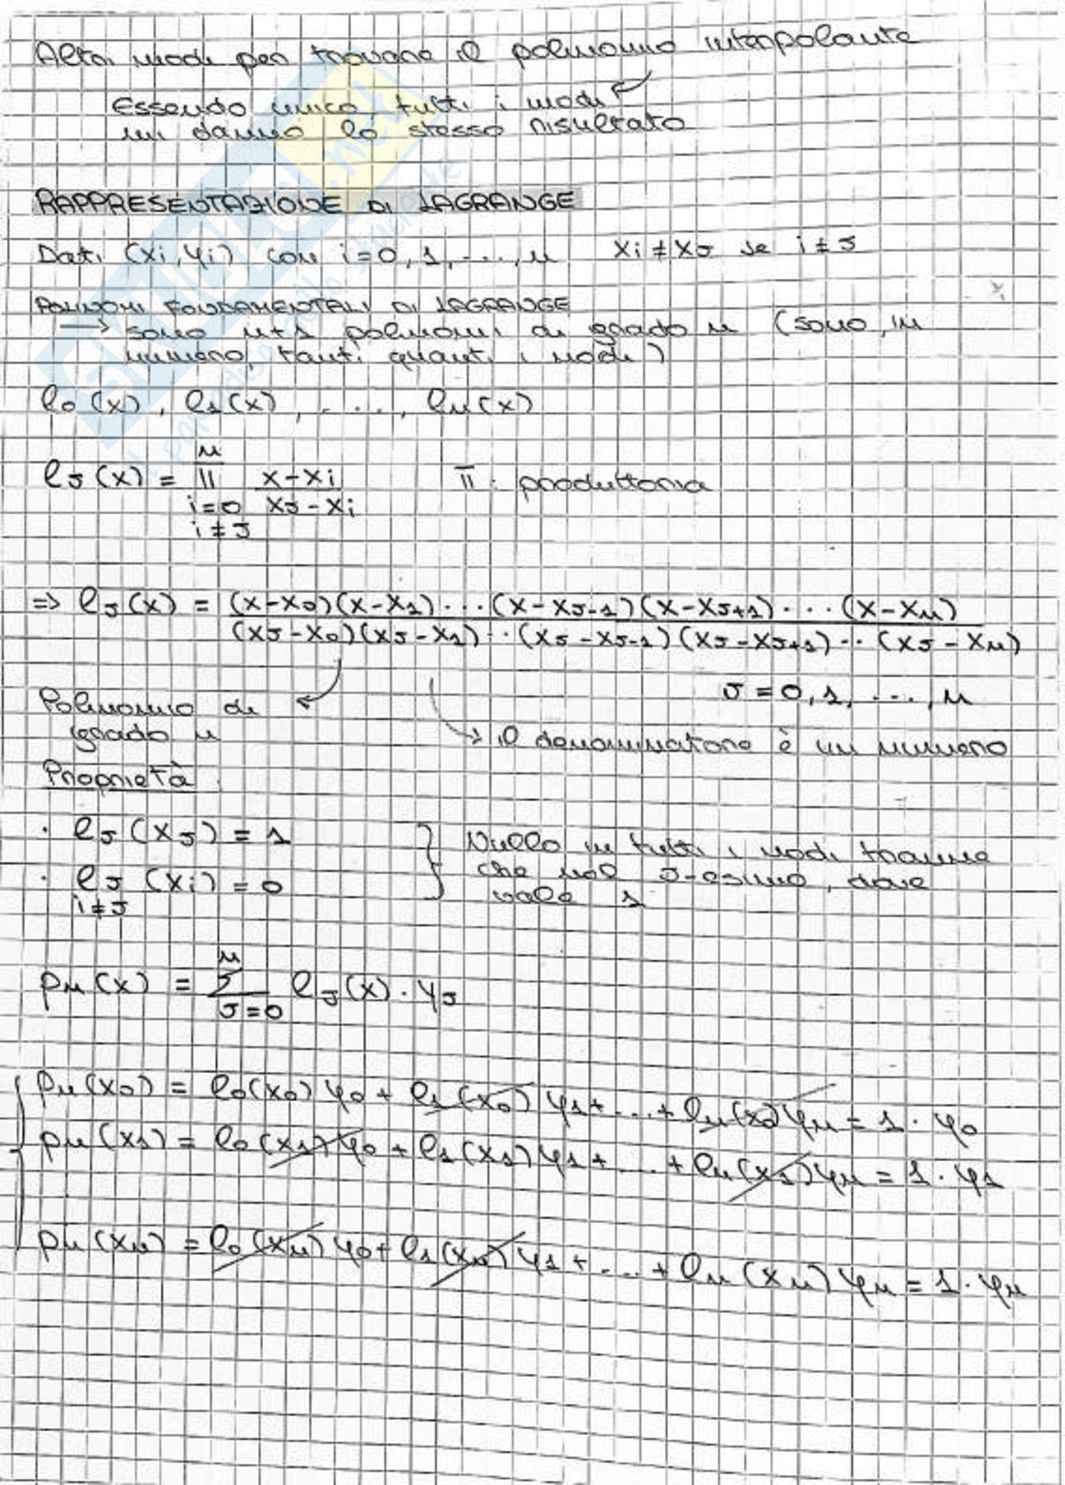 Altri modi per trovare il polinomio interpolante
Essendo unico tutti i modi
mi danno lo stesso risultato
RAPPRESENTAZIONE DI LAGRANGE
Dati (xi, yi) con i=0, 1, ..., n   xi ≠ xj se i ≠ j
POLINOMI FONDAMENTALI DI LAGRANGE
→ sono n+1 polinomi di grado n (sono, in
numero, tanti quanti i nodi)
l0(x), l1(x), ..., ln(x)
lj(x) = ∏ (i=0, i≠j; n) (x-xi)/(xj-xi)   Π: produttoria
⇒ lj(x) = (x-x0)(x-x1)...(x-xj-1)(x-xj+1)...(x-xn)
(xj-x0)(xj-x1)...(xj-xj-1)(xj-xj+1)...(xj-xn)
j=0, 1, ..., n
Polinomio di
grado n
→ il denominatore è un numero
Proprietà
· lj(xj) = 1
· lj(xi) = 0
i≠j
Nullo in tutti i nodi tranne
che nel j-esimo, dove
vale 1
pn(x) = Σ (j=0; n) lj(x) · yj
pn(x0) = l0(x0)y0 + l1(x0)y1 + ... + ln(x0)yn = 1 · y0
pn(x1) = l0(x1)y0 + l1(x1)y1 + ... + ln(x1)yn = 1 · y1
pn(xn) = l0(xn)y0 + l1(xn)y1 + ... + ln(xn)yn = 1 · yn